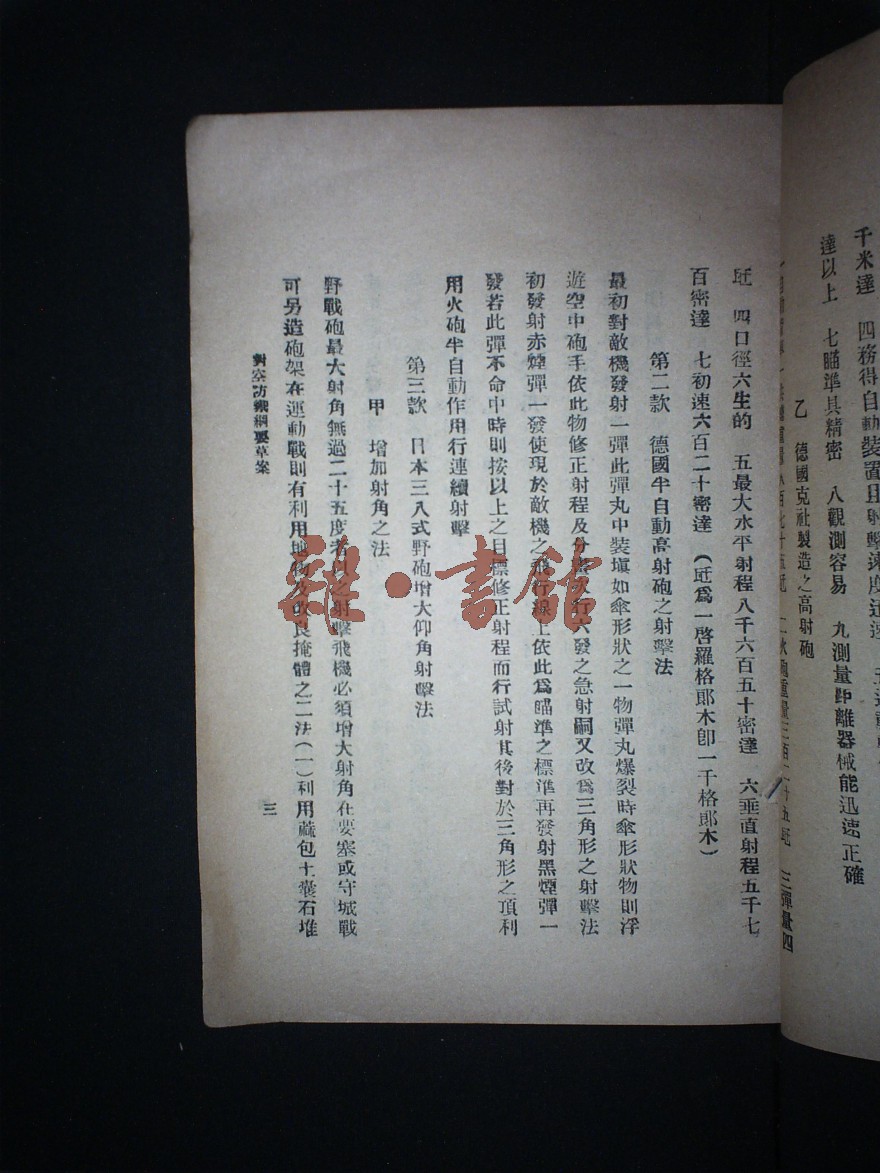 千米達　四務得自動裝置且射擊速度迅速
達以上　七瞄準具精密　八觀測容易　九測量距離器械能迅速正確
乙　德國克社製造之高射砲
三彈量四
瓩　四口徑六生的　五最大水平射程八千六百五十密達　六垂直射程五千七
百密達　七初速六百二十密達（瓩爲一啓羅格郎木卽一千格郎木）
第二款　德國半自動高射砲之射擊法
最初對敵機發射一彈此彈丸中裝塡如傘形狀之一物彈丸爆裂時傘形狀物則浮
遊空中砲手依此物修正射程及分畫次行六發之急射嗣又改爲三角形之射擊法
初發射赤煙彈一發使現於敵機之飛行線上依此爲瞄準之標準再發射黑煙彈一
發若此彈不命中時則按以上之目標修正射程而行試射其後對於三角形之頂利
用火砲半自動作用行連續射擊
第三款　日本三八式野砲增大仰角射擊法
甲　增加射角之法
野戰砲最大射角無過二十五度者以之射擊飛機必須增大射角在要塞或守城戰
可另造砲架在運動戰則有利用地物及改良掩體之二法（一）利用蔴包土囊石堆
對空防禦綱要草案
三
雜·書館